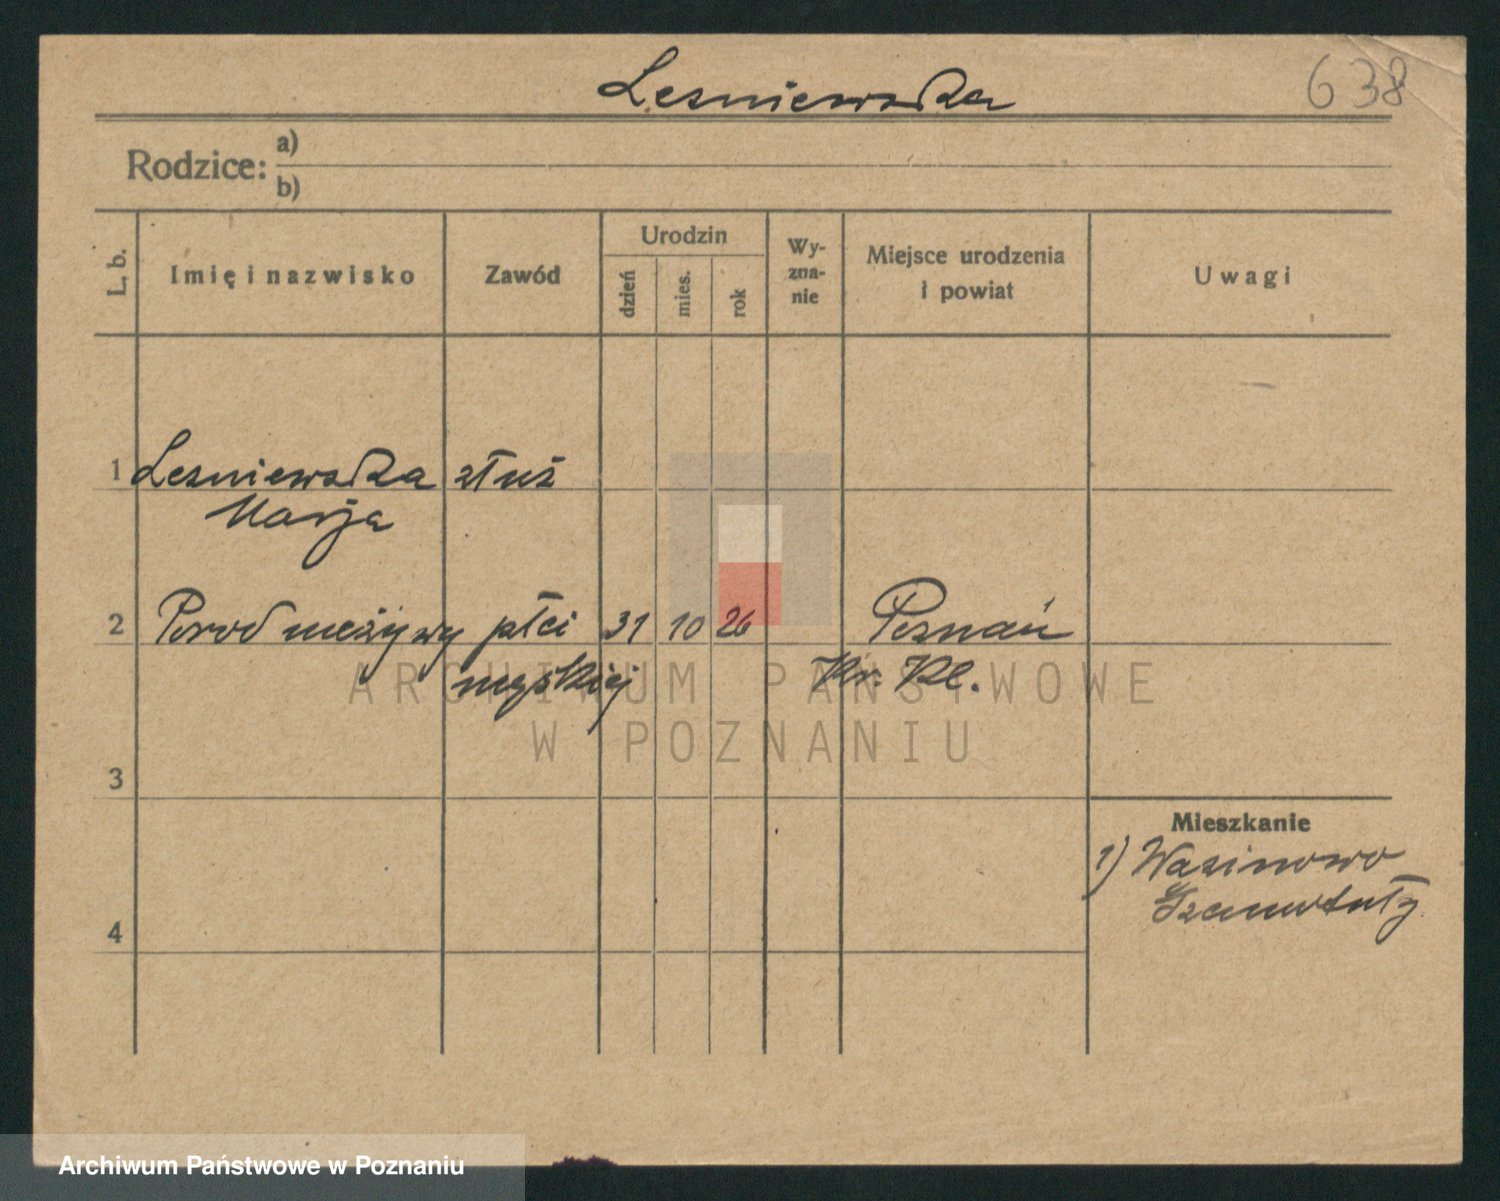 Lesniewska
638
Rodzice: a)
b)
L. b.
Imię i nazwisko
Zawód
Urodzin
dzień
mies.
rok
Wy-
zna-
nie
Miejsce urodzenia
i powiat
Uwagi
1 Lesniewska służ
Marja
2 Poród nieżywy płci 31 10 26 Poznań
męskiej Kr. Kl.
3
Mieszkanie
1) Wasinowo
Szamotuły
4
ARCHIWUM PAŃSTWOWE
W POZNANIU
Archiwum Państwowe w Poznaniu